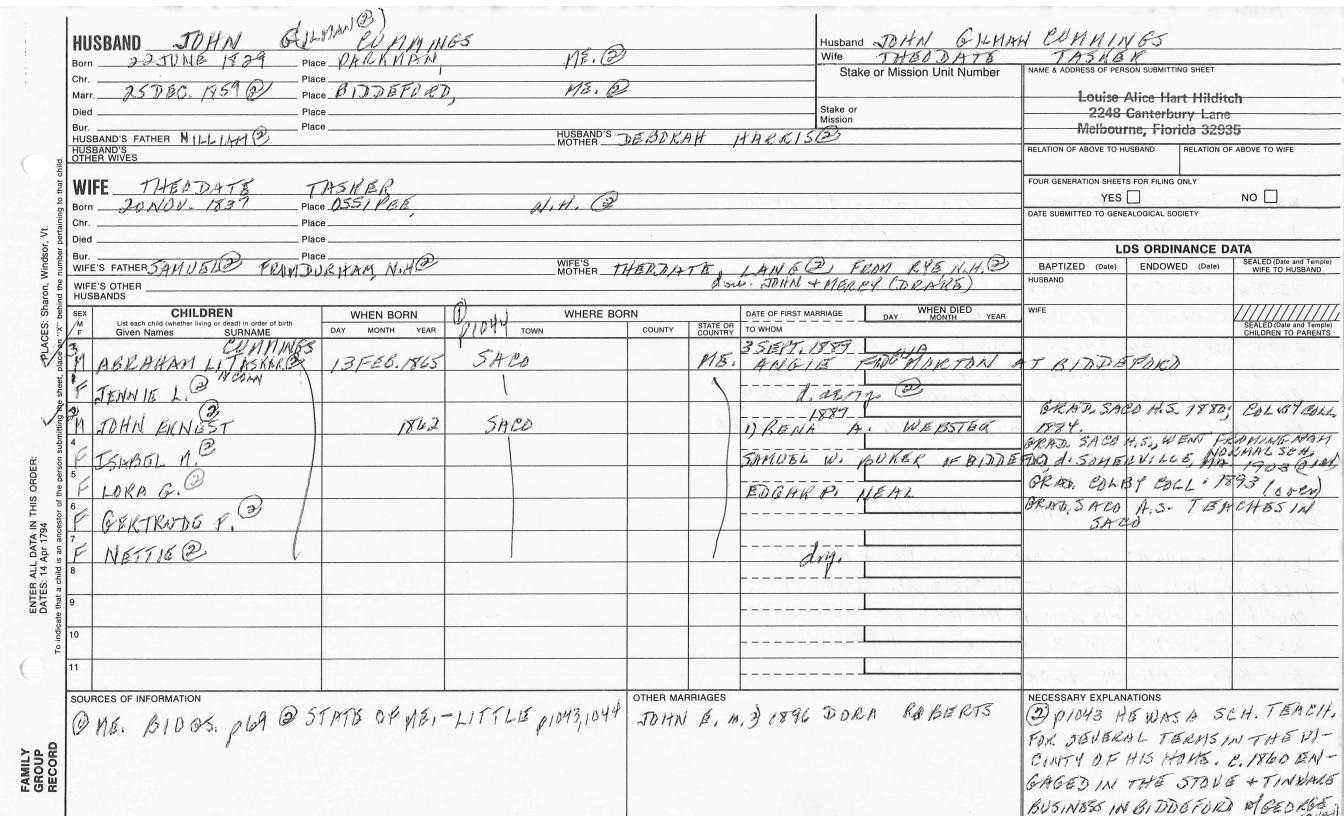 HUSBAND JOHN GILMAN ②) CUMMINGS
Born 22 JUNE 1829 Place PARKMAN, ME. ②
Chr. Place
Marr. 25 DEC. 1859 ② Place BIDDEFORD, ME. ②
Died Place
Bur. Place
HUSBAND'S FATHER WILLIAM ② HUSBAND'S MOTHER DEBORAH HARRIS ②
HUSBAND'S OTHER WIVES
WIFE THEODATE TASKER
Born 20 NOV. 1837 Place OSSIPEE, N.H. ②
Chr. Place
Died Place
Bur. Place
WIFE'S FATHER SAMUEL ② FROM DURHAM, N.H ② WIFE'S MOTHER THEODATE, LANE ②, FROM RYE N.H. ②
dau. JOHN + MERCY (DRAKE)
WIFE'S OTHER HUSBANDS
Husband JOHN GILMAN CUMMINGS
Wife THEODATE TASKER
Stake or Mission Unit Number
Stake or Mission
NAME & ADDRESS OF PERSON SUBMITTING SHEET
Louise Alice Hart Hilditch
2248 Canterbury Lane
Melbourne, Florida 32935
RELATION OF ABOVE TO HUSBAND RELATION OF ABOVE TO WIFE
FOUR GENERATION SHEETS FOR FILING ONLY
YES NO
DATE SUBMITTED TO GENEALOGICAL SOCIETY
LDS ORDINANCE DATA
BAPTIZED (Date) ENDOWED (Date) SEALED (Date and Temple) WIFE TO HUSBAND
HUSBAND
WIFE
SEALED (Date and Temple) CHILDREN TO PARENTS
SEX M F
CHILDREN
List each child (whether living or dead) in order of birth
Given Names SURNAME
WHEN BORN
DAY MONTH YEAR
① p1044
WHERE BORN
TOWN COUNTY STATE OR COUNTRY
DATE OF FIRST MARRIAGE
TO WHOM
WHEN DIED
DAY MONTH YEAR
3 M ABRAHAM LINCOLN TASKER ② CUMMINGS 13 FEB. 1865 SACO ME. 3 SEPT. 1889 ANGIE MORTON AT BIDDEFORD
1 F JENNIE L. ② d. ae 17 ②
2 M JOHN ERNEST ② 1862 SACO 1887 1) RENA A. WEBSTER GRAD. SACO H.S. 1880; COLBY COLL. 1884.
4 F ISABEL M. ② SAMUEL W. OF BIDDEFORD d. SOMERVILLE, MA 1903 GRAD. SACO H.S., WENT FRAMINGHAM NORMAL SCH.
5 F LORA G. ② EDGAR P. NEAL GRAD. COLBY COLL. 1893 (over)
6 F GERTRUDE F. ② GRAD. SACO H.S. TEACHES IN SACO
7 F NETTIE ② dny.
8
9
10
11
SOURCES OF INFORMATION
① ME. BIOGS. p69 ② STATE OF ME,-LITTLE p1043,1044
OTHER MARRIAGES
JOHN E. m. 2) 1896 DORA ROBERTS
NECESSARY EXPLANATIONS
② p1043 HE WAS A SCH. TEACH.
FOR SEVERAL TERMS IN THE VI-
CINTY OF HIS HOME. C. 1860 EN-
GAGED IN THE STOVE + TINWARE
BUSINESS IN BIDDEFORD w/GEORGE
ENTER ALL DATA IN THIS ORDER:
DATES: 14 Apr 1794
PLACES: Sharon, Windsor, Vt.
To indicate that a child is an ancestor of the person submitting the sheet, place an "X" behind the number pertaining to that child.
FAMILY
GROUP
RECORD